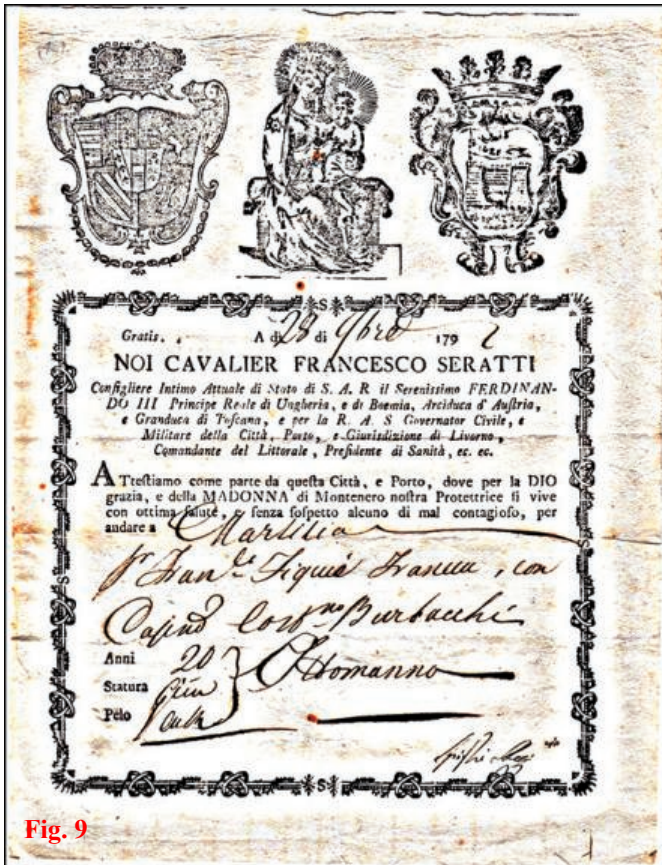 Gratis. A dì 28 di 9bre 179
NOI CAVALIER FRANCESCO SERATTI
Configliere Intimo Attuale di Stato di S. A. R il Serenissimo FERDINAN-
DO III Principe Reale di Ungheria, e di Boemia, Arciduca d' Austria,
e Granduca di Toscana, e per la R. A. S Governator Civile, e
Militare della Città, Porto, e Giurisdizione di Livorno,
Comandante del Littorale, Presidente di Sanità, ec. ec.
ATtestiamo come parte da questa Città, e Porto, dove per la DIO
grazia, e della MADONNA di Montenero nostra Protettrice si vive
con ottima salute, e senza sospetto alcuno di mal contagioso, per
andare a Marsilia
con
Burbacchi
Anni 20 Ottomanno
Statura
Pelo
Fig. 9